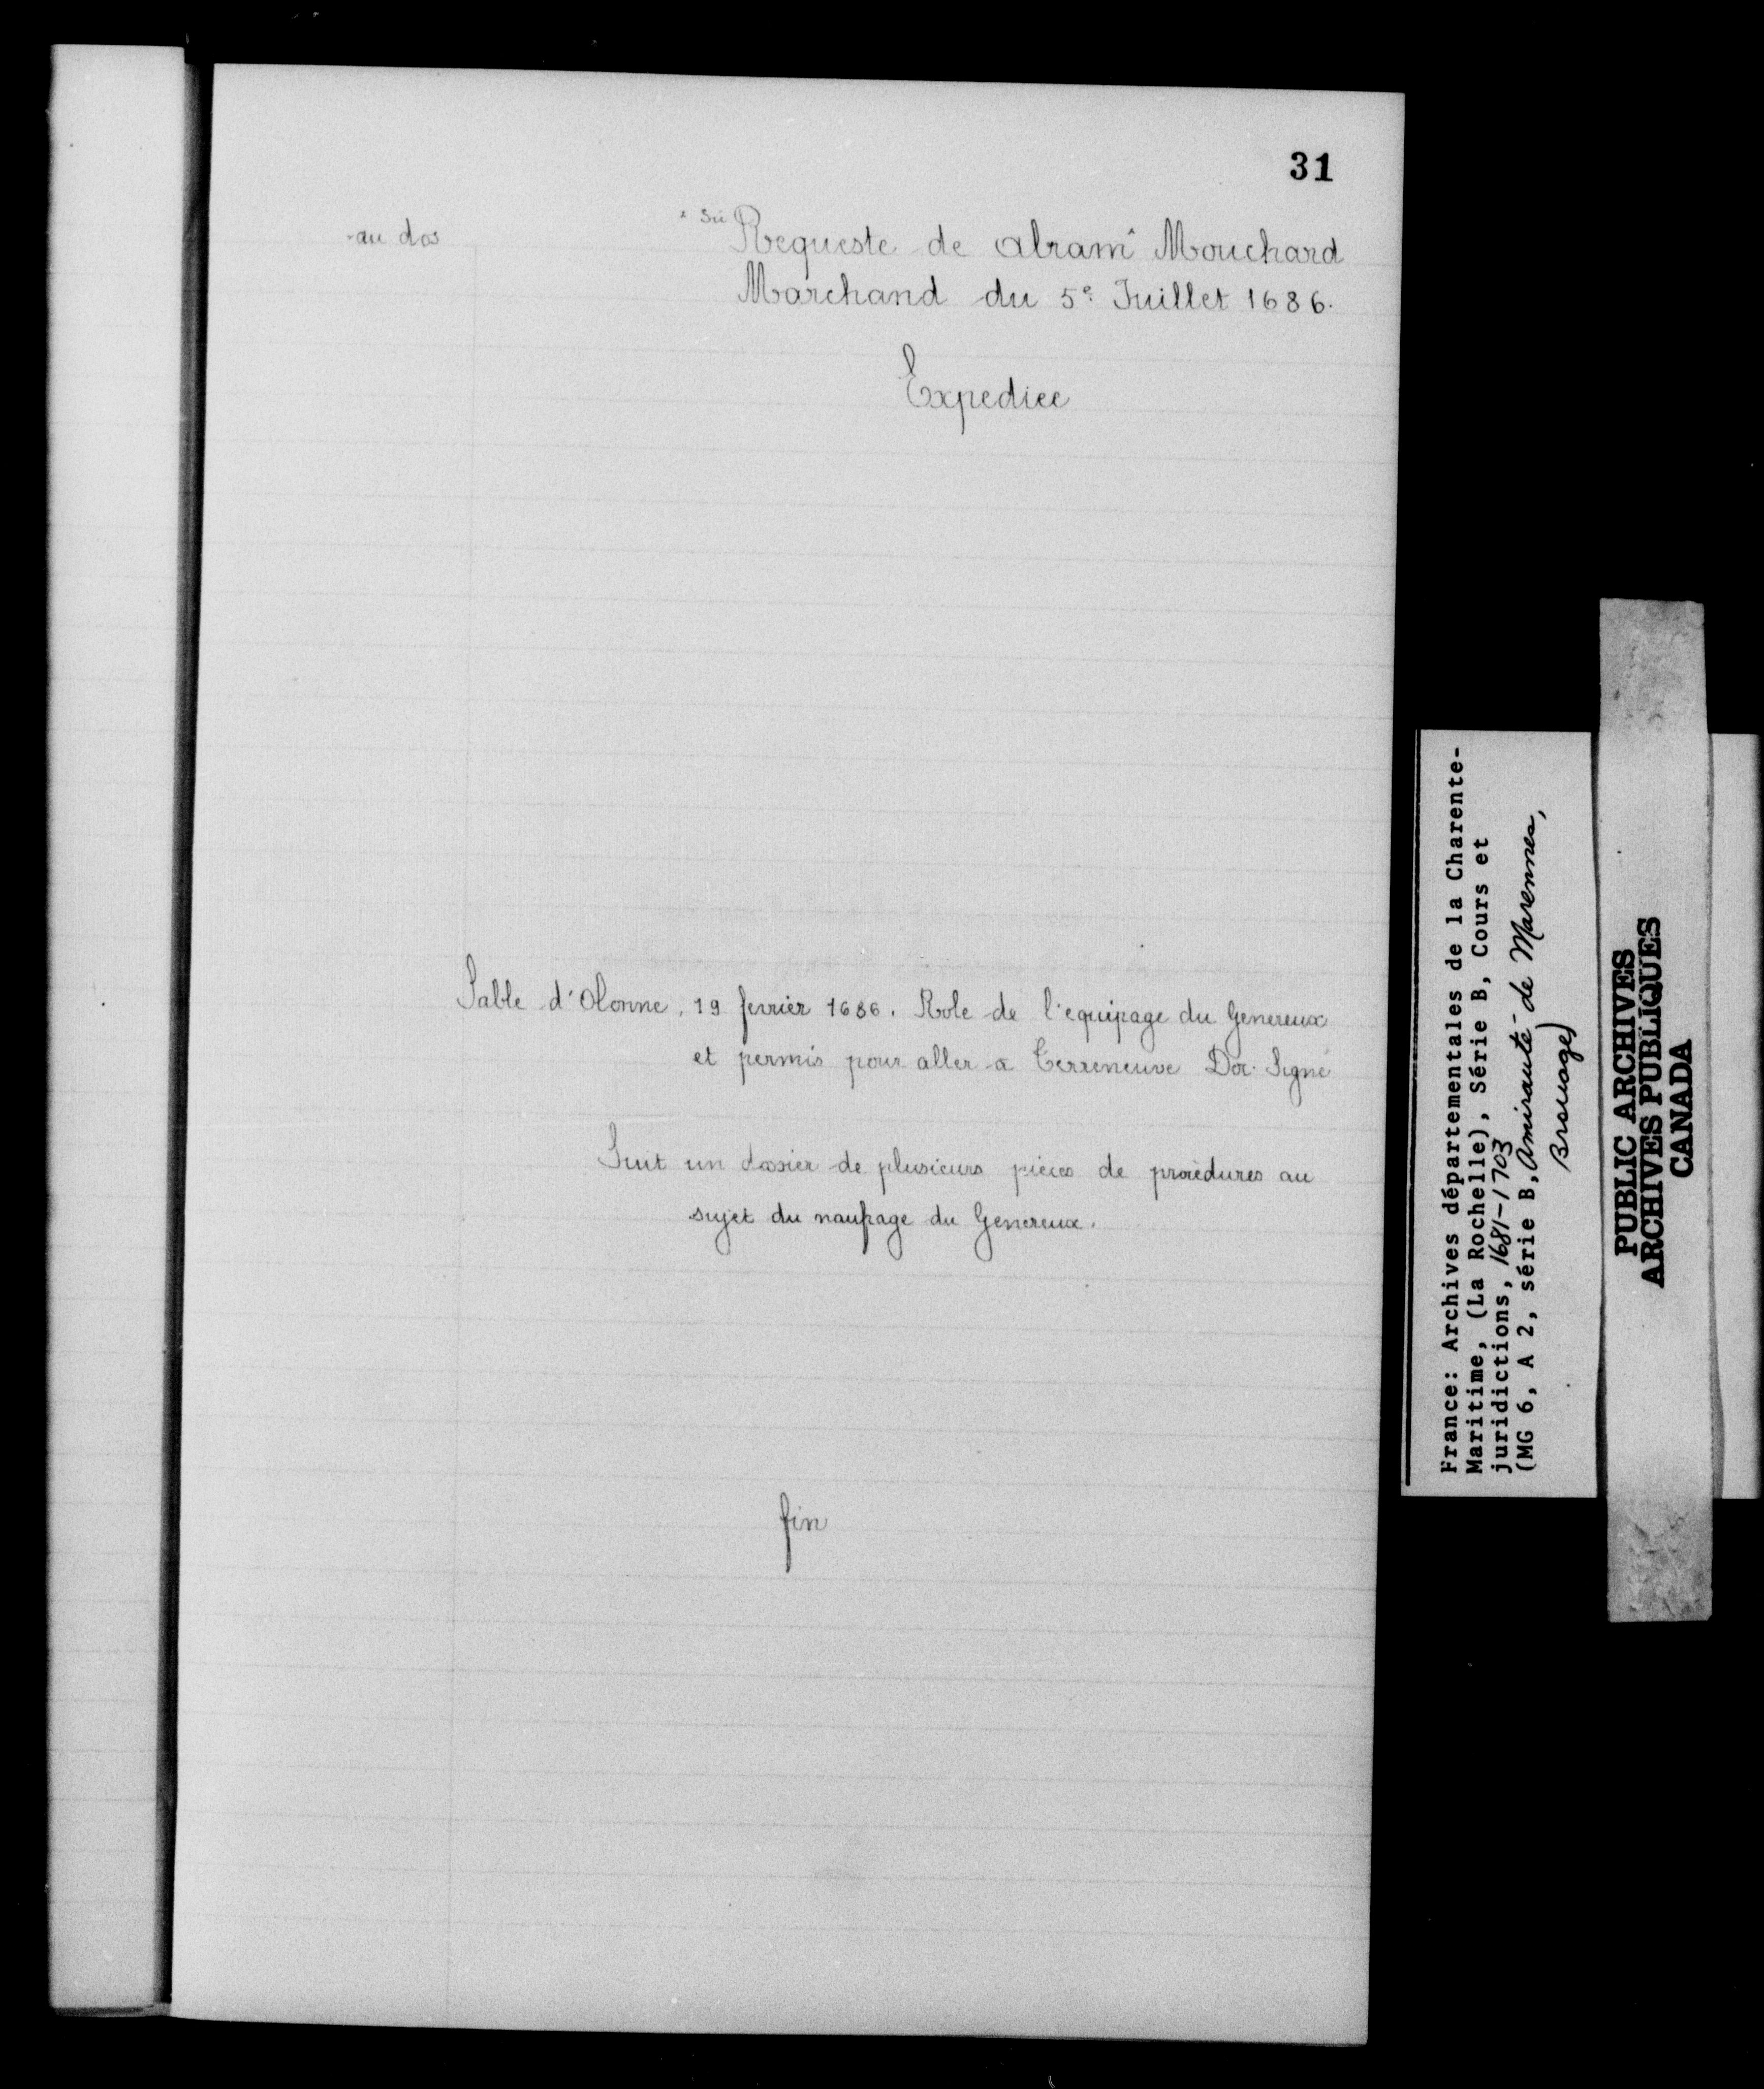 31
au dos
x Su Requeste de abram Mouchard
Marchand du 5e Juillet 1686.
Expediee
Sable d'Olonne, 19 fevrier 1686. Role de l'equipage du Genereux
et permis pour aller a Terreneuve Doc. Signé
Suit un dossier de plusieurs pièces de procèdures au
sujet du naufrage du Genereux.
fin
France: Archives départementales de la Charente-
Maritime, (La Rochelle), Série B, Cours et
juridictions, 1681-1703
(MG 6, A 2, série B, Amirauté de Marennes,
Brouage)
PUBLIC ARCHIVES
ARCHIVES PUBLIQUES
CANADA